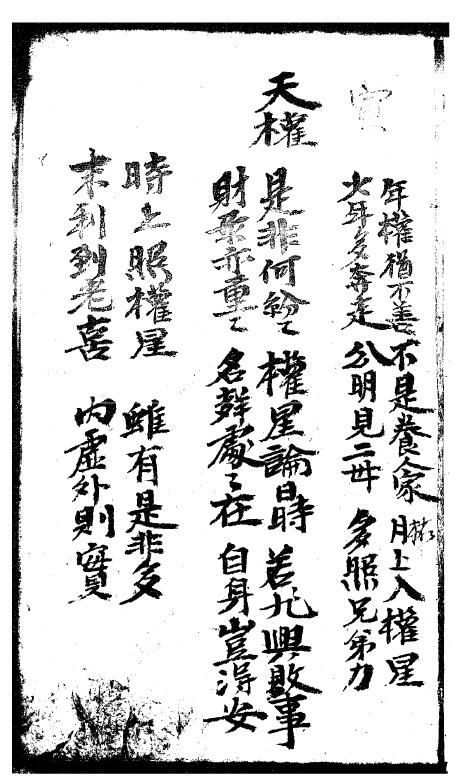 寅
年權猶不善 不是養人家 月上入權星
少年多奔走 分明見二 多照兄弟力
天權
是非何紛々 權星論日時 若凡興敗事
財柔亦重々 名聲處々在 自身豈得安
時上照權星 雖有是非多
末利到老喜 內虛外則實